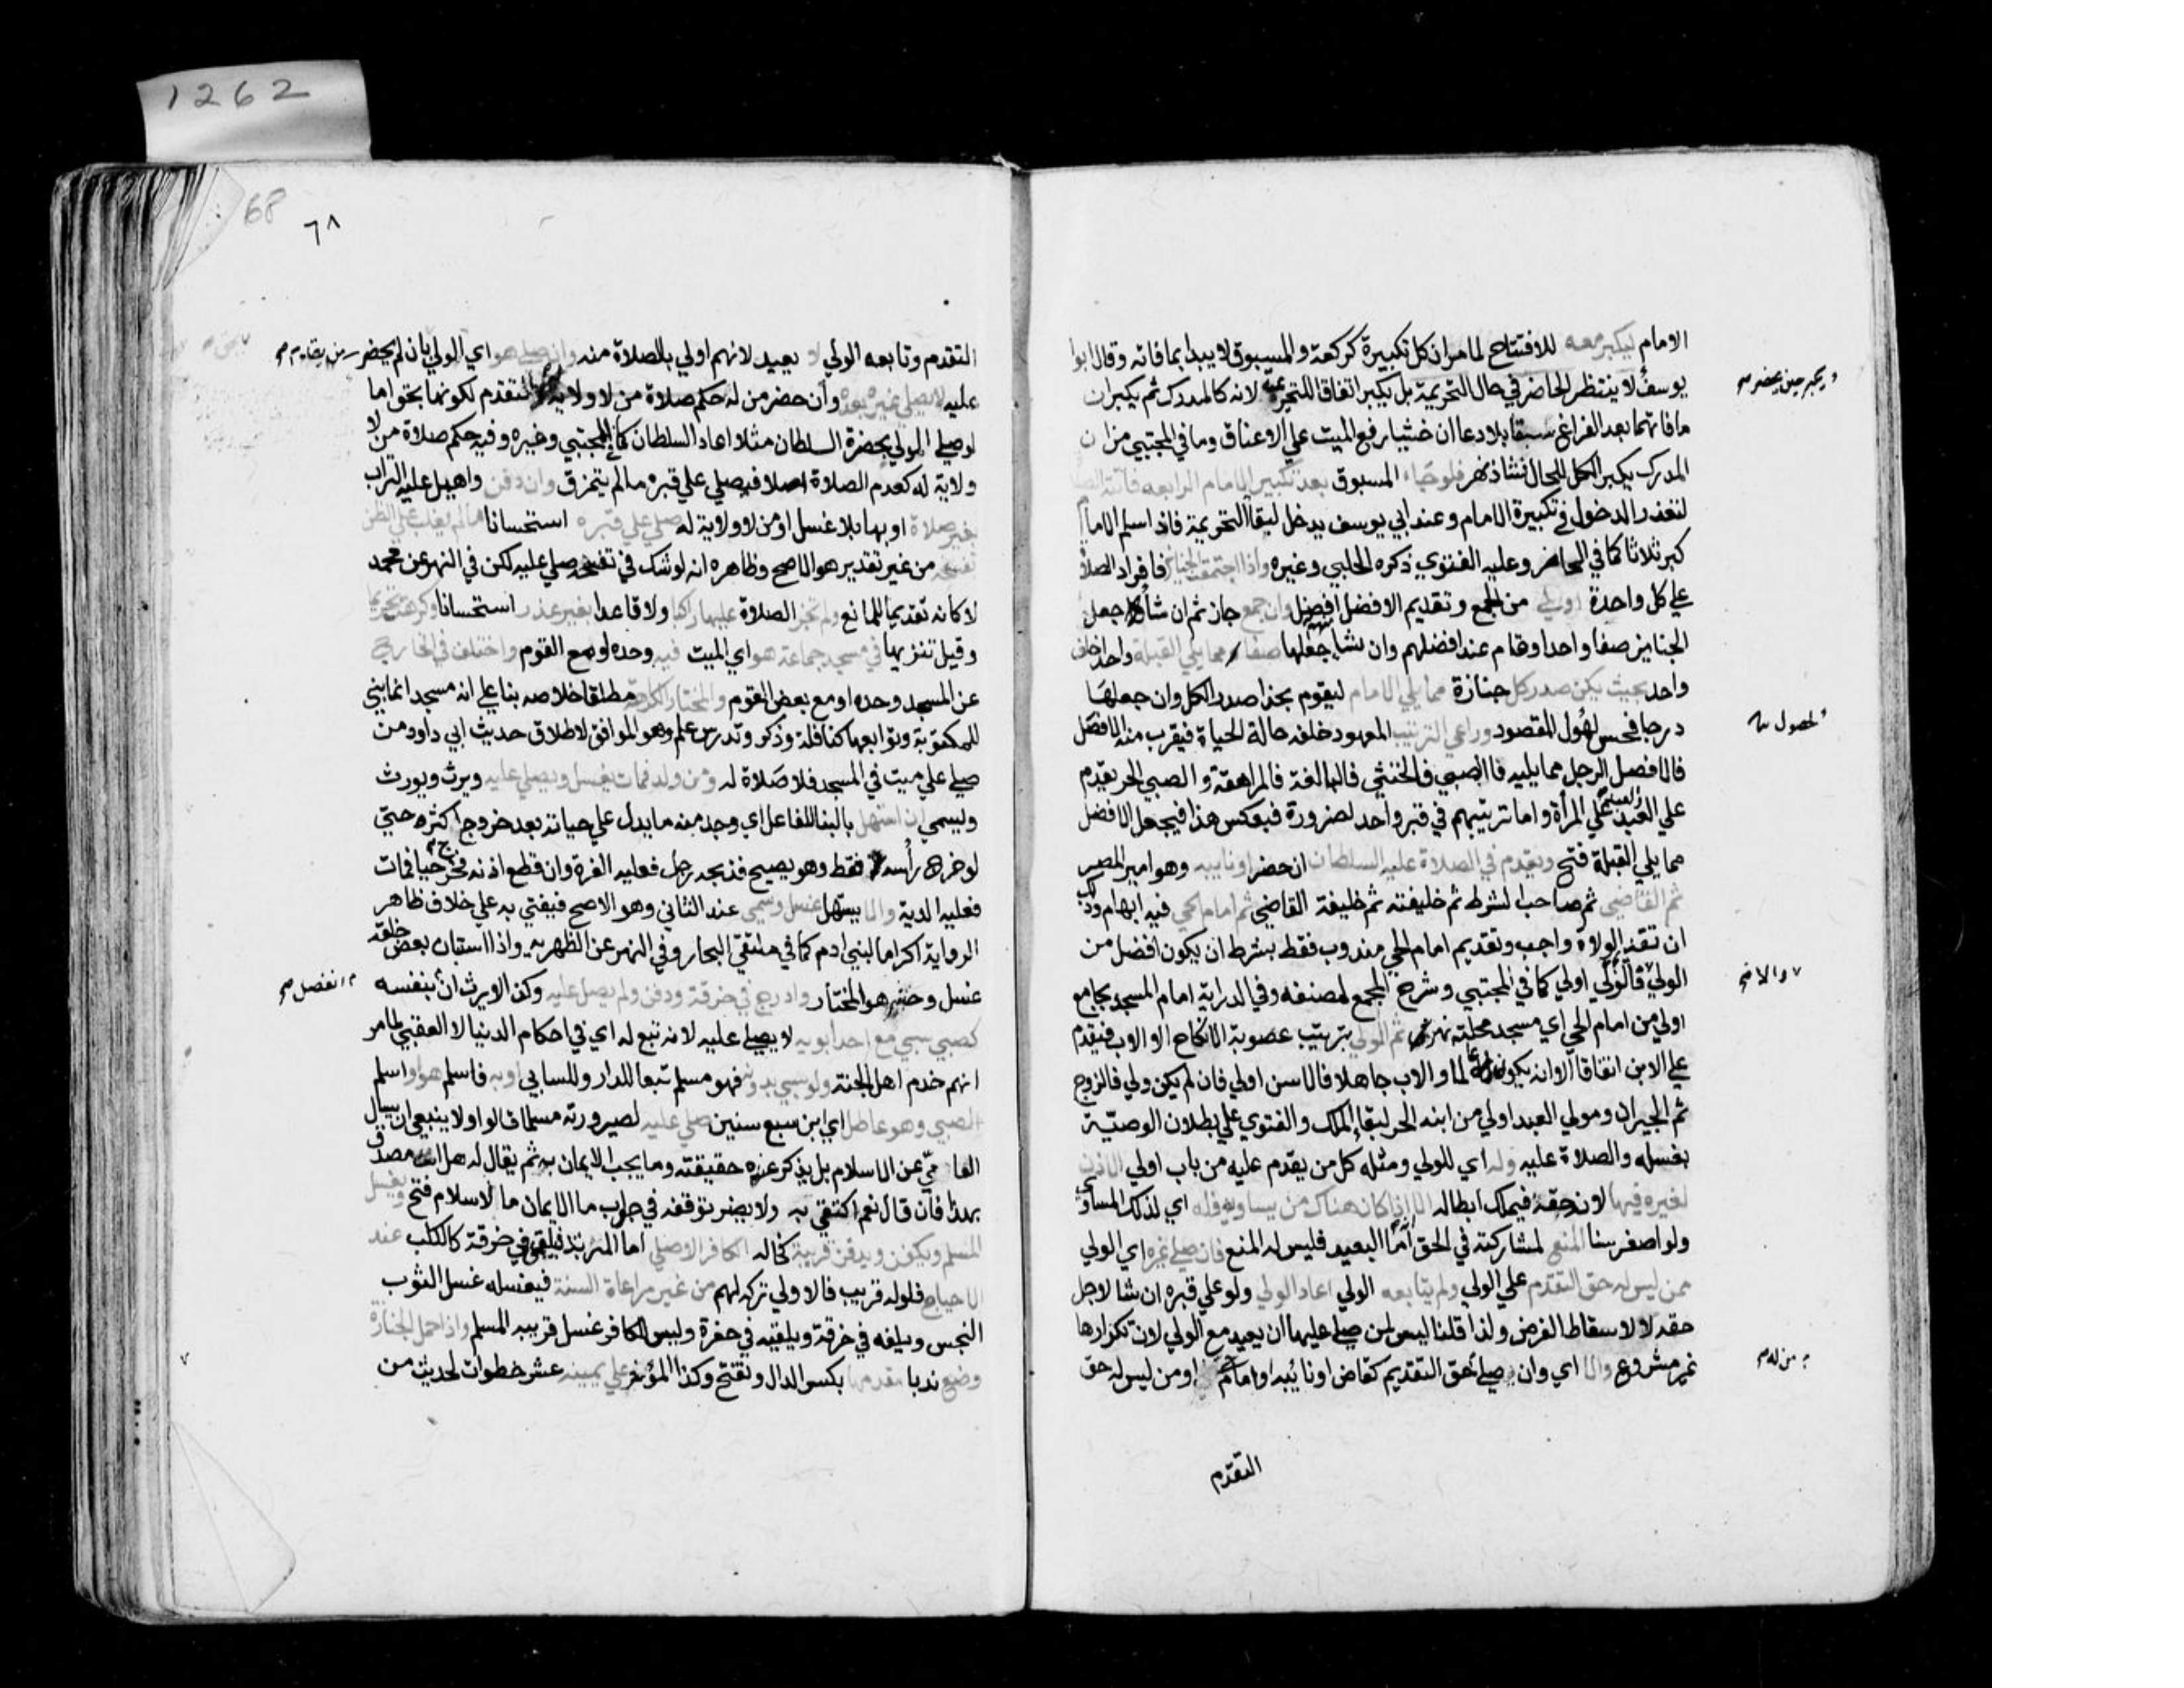 1262
68
٦٨
الامام ليكبر معه للافتتاح لما مر ان كل تكبيرة كركعة والمسبوق لا يبدا بما فاته وقال ابوا
يوسف لا ينتظر الحاضر في حال التحريمة بل يكبر اتفاقا للتحريمة لانه كالمدرك ثم يكبران
ما فاتهما بعد الفراغ سبقا بلا دعا ان خشيا رفع الميت علي الاعناق وما في المجتبي من ان
المدرك يكبر الكل للحال فشاذ نهر فلو جاء المسبوق بعد تكبير الامام الرابعه فاتته الصلا
لتعذر الدخول في تكبيرة الامام وعند ابي يوسف يدخل لبقا التحريمة فاذا سلم الامام
كبر ثلاثا كما في الحاضر وعليه الفتوي ذكره الحلبي وغيره واذا اجتمعت الجنائز فافراد الصلاة
علي كل واحدة اولي من الجمع وتقديم الافضل افضل وان جمع جاز ثم ان شا جعل
الجنايز صفا واحدا وقام عند افضلهم وان شا جعلها صفا مما يلي القبلة واحدا خلف
واحد بحيث يكن صدر كل جنازة مما يلي الامام ليقوم بحذا صدر الكل وان جعلها
درجا فحسن لحصول المقصود وراعي الترتيب المعهود خلفه حالة الحياة فيقرب منه الافضل
فالافضل الرجل مما يليه فالصبي فالخنثي فالبالغة فالمراهقة والصبي الحر يقدم
علي العبد والعبد علي المرأة واما ترتيبهم في قبر واحد لضرورة فبعكس هذا فيجعل الافضل
مما يلي القبلة فتح ويقدم في الصلاة عليه السلطان ان حضر او نايبه وهو امير المصر
ثم القاضي ثم صاحب الشرط ثم خليفته ثم خليفة القاضي ثم امام الحي فيه ابهام وذلك
ان تقديم الولاة واجب وتقديم امام الحي مندوب فقط بشرط ان يكون افضل من
الولي والا فالولي اولي كما في المجتبي وشرح المجمع لمصنفه وفي الدراية امام المسجد بجامع
اولي من امام الحي اي مسجد محلته نهر ثم الولي بترتيب عصوبة الانكاح الا الاب فيقدم
علي الابن اتفاقا الا ان يكون عالما والاب جاهلا فالاسن اولي فان لم يكن ولي فالزوج
ثم الجيران ومولي العبد اولي من ابنه الحر لبقاء الملك والفتوي علي بطلان الوصية
بغسله والصلاة عليه وله اي للولي ومثله كل من يقدم عليه من باب اولي الاذن
لغيره فيها لانه حقه فيملك ابطاله الا اذا كان هناك من يساويه فله اي لذلك المساوي
ولو اصغر سنا المنع لمشاركته في الحق اما البعيد فليس له المنع فان صلي غيره اي الولي
ممن ليس له حق التقدم علي الولي ولم يتابعه الولي اعاد الولي ولو علي قبره ان شا لاجل
حقه لا لاسقاط الفرض ولذا قلنا ليس لمن صلي عليها ان يعيد مع الولي لان تكرارها
غير مشروع والا اي وان صلي احق التقديم كقاض او نائبه او امام حي او من ليس له حق
التقدم
ويكبر حين يحضر صح
لحصول
والا صح
من له صح
التقدم وتابعه الولي لا يعيد لانهم اولي بالصلاة منه وان صلي هو اي الولي بان لم يحضر من يقدم صح
عليه لا يصلي غيره بعده وان حضر من له حكم صلاة من لا ولاية التقدم لكونها بحق اما
لو صلي الولي بحضرة السلطان مثلا اعاد السلطان كما في المجتبي وغيره وفيه حكم صلاة من لا
ولاية له كعدم الصلاة اصلا فيصلي علي قبره ما لم يتمزق وان دفن واهيل عليه التراب
بغير صلاة او بها بلا غسل او من لا ولاية له صلي علي قبره استحسانا ما لم يغلب علي الظن
تفسخه من غير تقدير هو الاصح وظاهره انه لو شك في تفسخه صلي عليه لكن في النهر عن محمد
لا كانه تقديما للمانع ولم تجز الصلاة عليها راكبا ولا قاعدا بغير عذر استحسانا وكرهت تحريما
وقيل تنزيها في مسجد جماعة هو اي الميت فيه وحده او مع القوم واختلف في الخارجة
عن المسجد وحده او مع بعض القوم والمختار الكراهة مطلقا خلاصه بنا علي انه مسجد انما بني
للمكتوبة وتوابعها كنافلة وذكر وتدريس علم وهو الموافق لاطلاق حديث ابي داود من
صلي علي ميت في المسجد فلا صلاة له ومن ولد فمات يغسل ويصلي عليه ويرث ويورث
ويسمي ان استهل بالبنا للفاعل اي وجد منه ما يدل علي حياته بعد خروج اكثره حتي
لو خرج رأسه فقط وهو يصيح فذبحه رجل فعليه الغرة وان قطع اذنه فخرج حيا فمات
فعليه الدية والا يستهل غسل وسمي عند الثاني وهو الاصح فيفتي به علي خلاف ظاهر
الرواية اكراما لبني ادم كما في ملتقي البحار وفي النهر عن الظهريه واذا استبان بعض خلقه
غسل وحشر هو المختار وادرج في خرقة ودفن ولم يصل عليه وكذا لا يرث ان بنفسه
انفصل صح
كصبي سبي مع احد ابويه لا يصلي عليه لانه تبع له اي في احكام الدنيا لا العقبي لما مر
انهم خدم اهل الجنة ولو سبي بدونه فهو مسلم تبعا للدار وللسابي او به فاسلم هو او اسلم
الصبي وهو عاقل اي ابن سبع سنين صلي عليه لصيرورته مسلما قالوا ولا ينبغي ان يسال
العامي عن الاسلام بل يذكر عنده حقيقته وما يجب الايمان به ثم يقال له هل انت مصدق
بهذا فان قال نعم اكتفي به ولا يضر توقفه في جواب ما الايمان ما الاسلام فتح ويغسل
المسلم ويكفن ويدفن قريبه كخاله الكافر الاصلي اما المرتد فيلقي في خرقة كالكلب عند
الاحتياج فلو له قريب فالاولي تركه لهم من غير مراعاة السنة فيغسله غسل الثوب
النجس ويلفه في خرقة ويلقيه في حفرة وليس للكافر غسل قريبه المسلم واذا حمل الجنازة
وضع ندبا مقدمها بكسر الدال وتفتح وكذا المؤخر علي يمينه عشر خطوات لحديث من